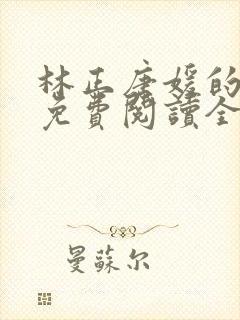 林正唐媛的
免費閱讀全
曼蘇尔